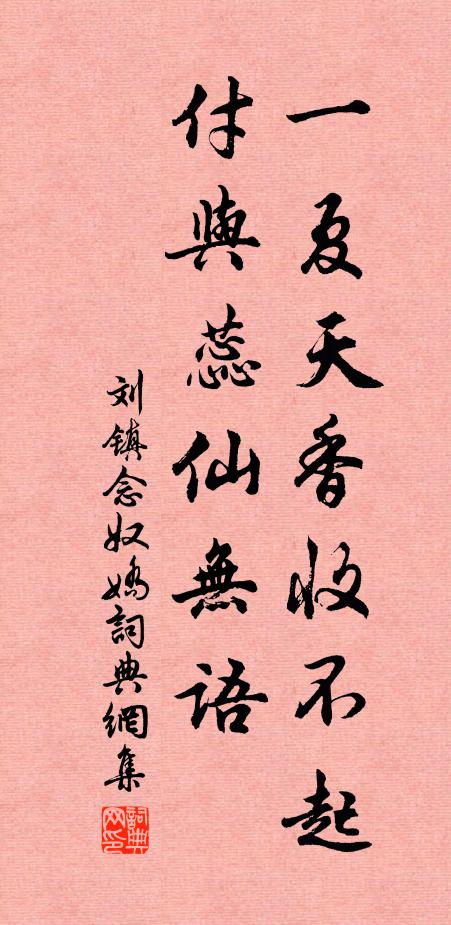 一夏天香收不起
付與蕊仙無語
刘镇念奴嬌詞典網集
詞典网印